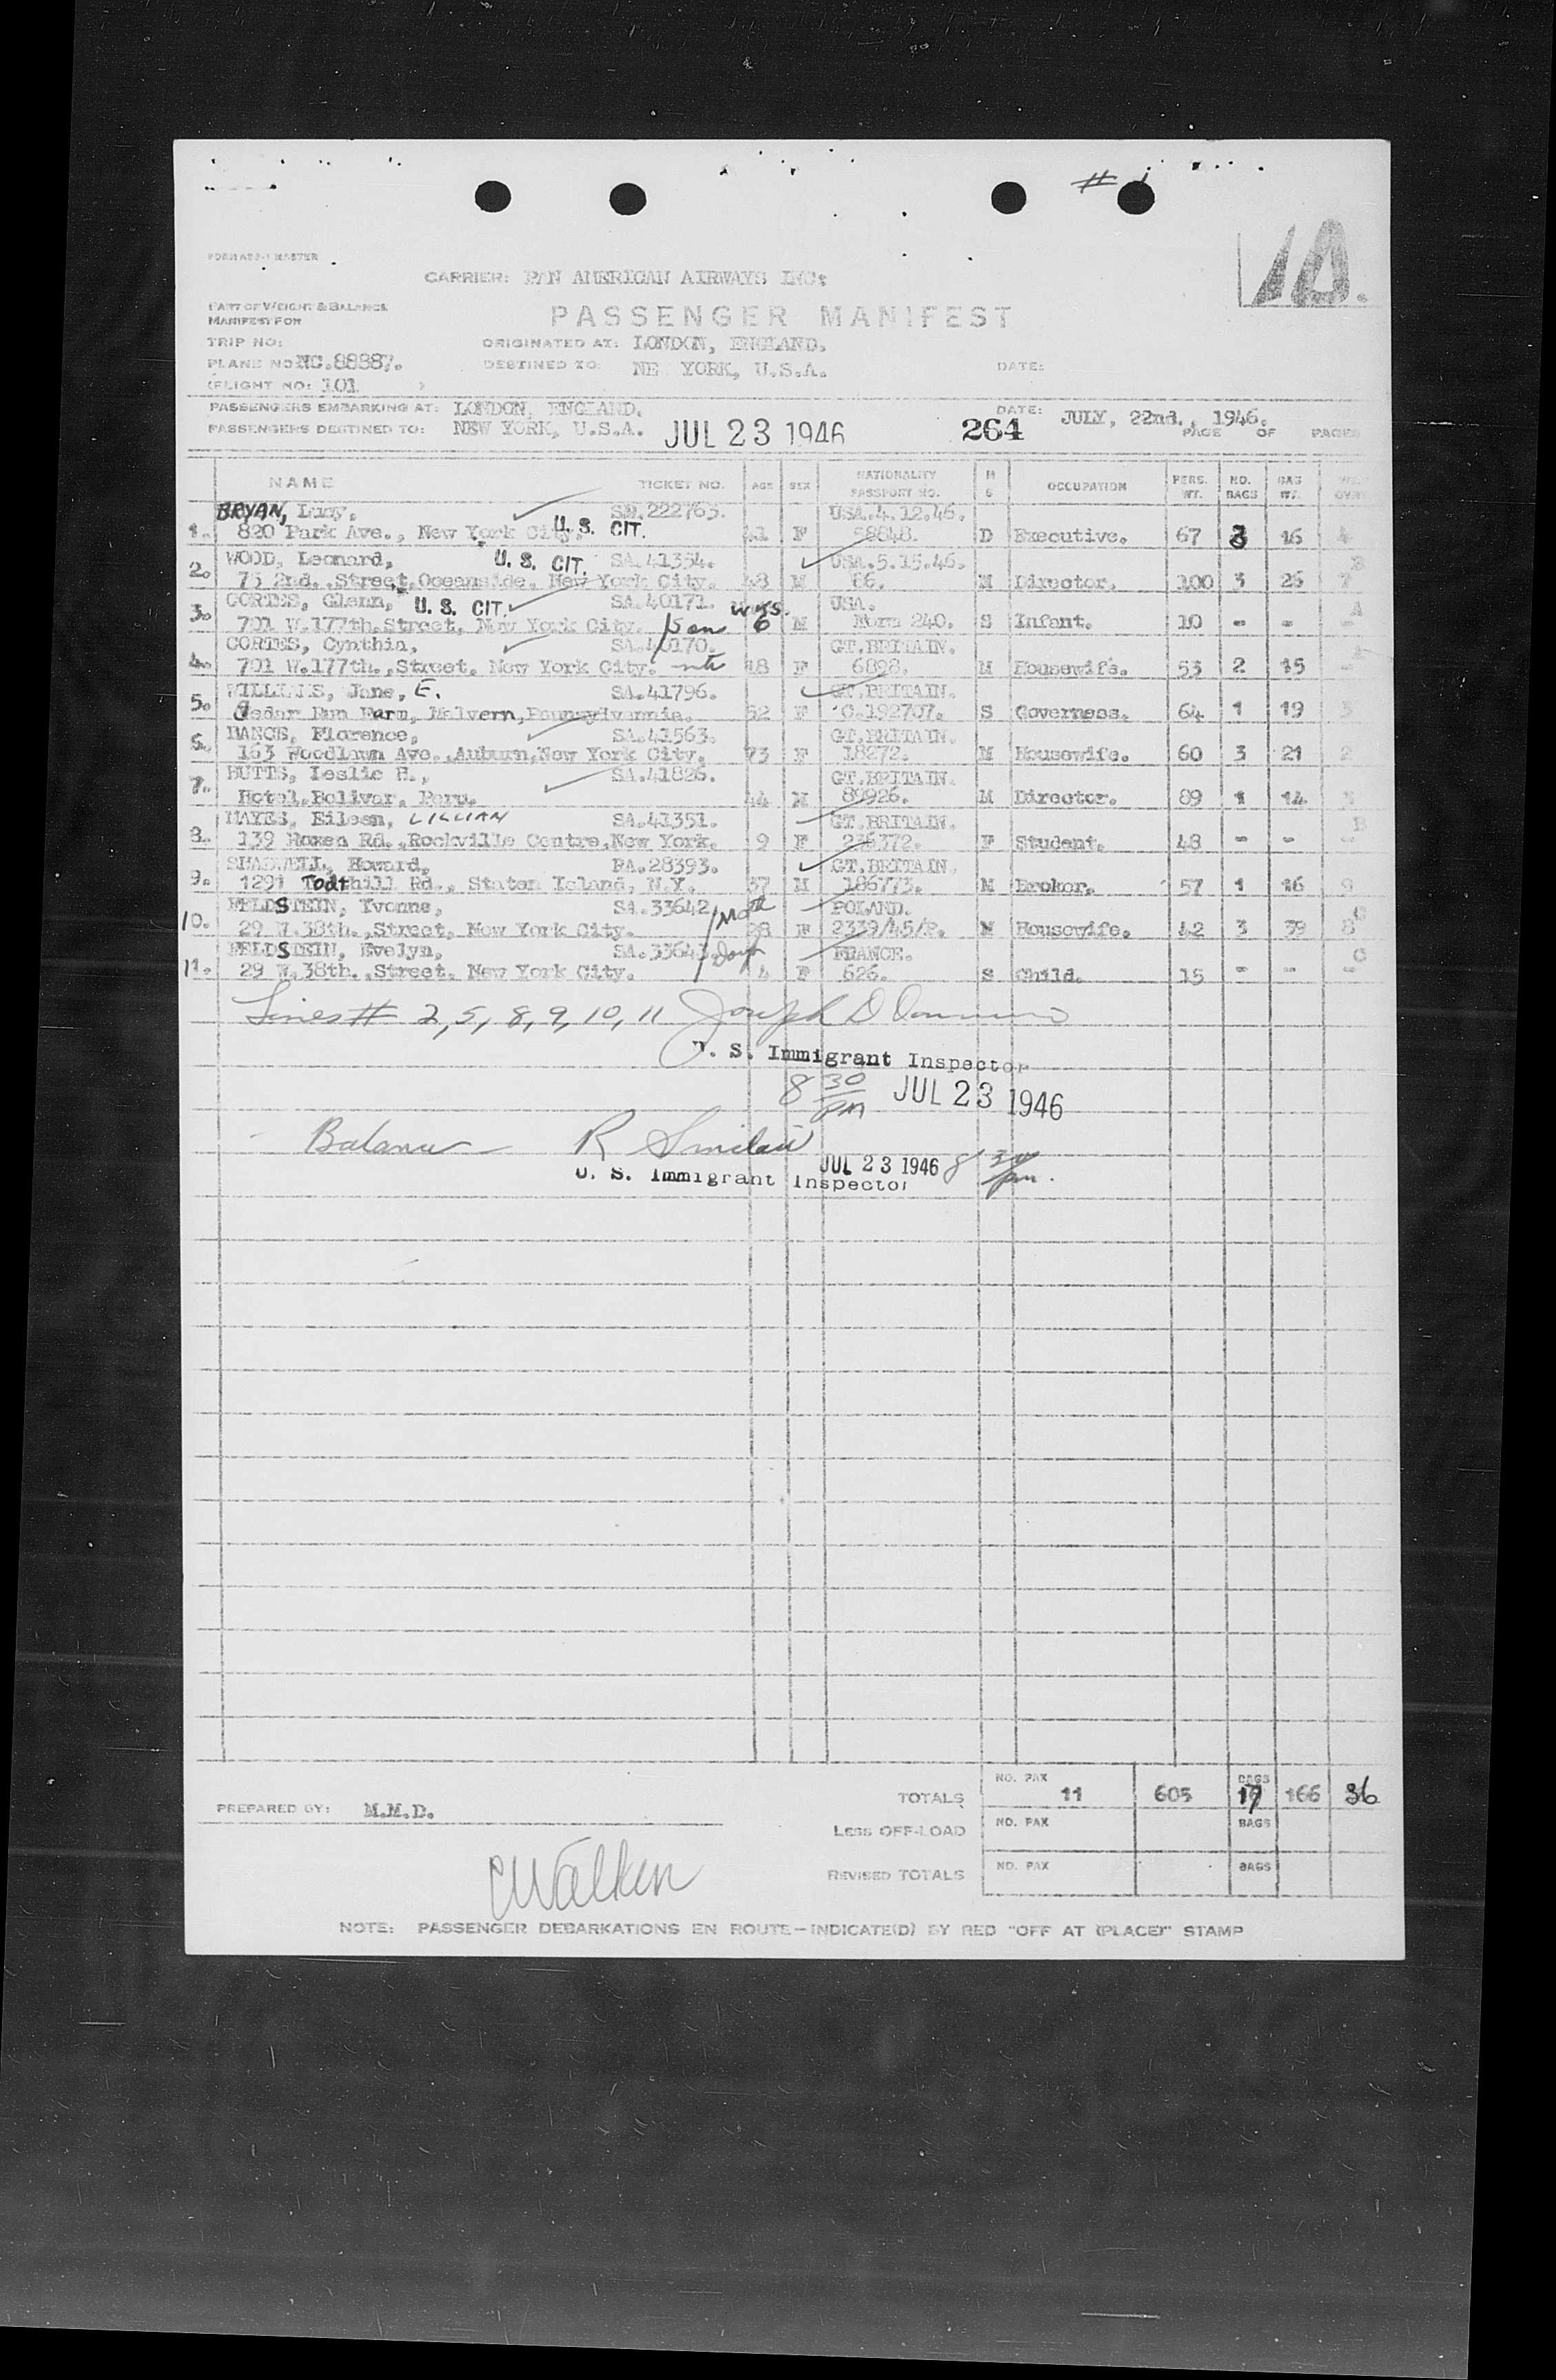 # 1
10.
FORM ABB-1 MASTER
CARRIER: PAN AMERICAN AIRWAYS INC:
PART OF WEIGHT & BALANCE
MANIFEST FOR
PASSENGER MANIFEST
TRIP NO: ORIGINATED AT: LONDON, ENGLAND.
PLANE NO: NC.88887. DESTINED TO: NE YORK, U.S.A. DATE:
(FLIGHT NO: 101 )
PASSENGERS EMBARKING AT: LONDON, ENGLAND. DATE: JULY, 22nd., 1946.
PASSENGERS DESTINED TO: NEW YORK, U.S.A. JUL 23 1946 264 PAGE OF PAGES
NAME TICKET NO. AGE SEX NATIONALITY PASSPORT NO. M S OCCUPATION PERS. WT. NO. BAGS BAG WT.
BRYAN, Lucy, SD.222763. USA.4.12.46.
1. 820 Park Ave., New York City. U. S. CIT. 41 F 58848. D Executive. 67 3 16 4
WOOD, Leonard, U. S. CIT. SA.41354. USA.5.15.46. B
2. 75 2nd. Street, Oceanside, New York City. 48 M 86. M Director. 100 3 26 7
CORTES, Glenn, U. S. CIT. SA.40171. wks. USA. A
3. 701 W.177th.Street, New York City. / Son 6 M Form 240. S Infant. 10 - - -
CORTES, Cynthia, SA.40170. GT.BRITAIN.
4. 701 W.177th.,Street. New York City. mth 18 F 6898. M Housewife. 53 2 15 -
WILLIAMS, Jane, E. SA.41796. GT.BRITAIN.
5. Cedar Run Farm, Malvern,Pennsylvannia. 52 F C.192707. S Governess. 64 1 19 3
BANCS, Florence, SA.41563. GT.BRITAIN.
6. 163 Woodlawn Ave.,Auburn,New York City. 73 F 18272. M Housewife. 60 3 21 2
BUTTS, Leslie H., SA.41826. GT.BRITAIN.
7. Hotel.Bolivar. Peru. 44 M 89926. M Director. 89 1 14 3
HAYES, Eileen, LILLIAN SA.41351. GT.BRITAIN. B
8. 139 Roxen Rd.,Rockville Centre,New York. 9 F 236372. F Student. 48 - - -
SHADWELL, Howard, PA.28393. GT.BRITAIN
9. 1291 Todthill Rd., Staten Island, N.Y. 37 M 186773. M Broker. 57 1 16 9
FELDSTEIN, Yvonne, SA.33642 / Moth POLAND. C
10. 29 W.38th.,Street, New York City. 28 F 2339/45/P. M Housewife. 42 3 39 8
FELDSTEIN, Evelyn, SA.33643. Daugh FRANCE. C
11. 29 W.38th.,Street. New York City. 4 F 626. S Child. 15 - - -
Lines # 2, 5, 8, 9, 10, 11 Joseph D
U. S. Immigrant Inspector
8 30 PM JUL 23 1946
Balance R Sinclair
JUL 23 1946 8 30 pm.
U. S. Immigrant Inspector
TOTALS NO. PAX 11 605 BAGS 17 166 36
PREPARED BY: M.M.D.
LESS OFF-LOAD NO. PAX BAGS
REVISED TOTALS NO. PAX BAGS
CWalken
NOTE: PASSENGER DEBARKATIONS EN ROUTE—INDICATE(D) BY RED "OFF AT (PLACE)" STAMP